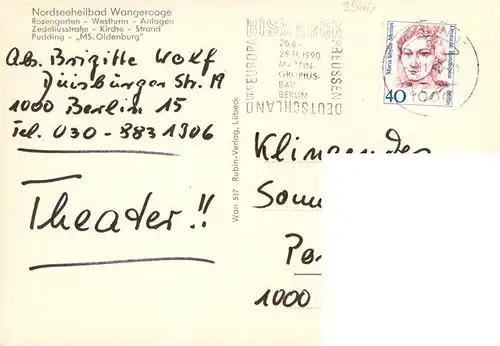 Nordseeheilbad Wangerooge
Rosengarten - Westturm - Anlagen
Zedeliusstraße - Kirche - Strand
Pudding - „MS. Oldenburg"
Abs. Brigitte Wolf
Duisburger Str. 19
1000 Berlin 15
Tel. 030-883 1306
Theater!!
Wan 537 Rubin-Verlag, Lübeck
BISMARCK
PREUSSEN
DEUTSCHLAND
UND EUROPA
26.8.-
25.11.1990
MARTIN-
GROPIUS-
BAU
BERLIN
Maria Sibylla Merian
Deutsche Bundespost
Berlin
40
Klingendes
1000